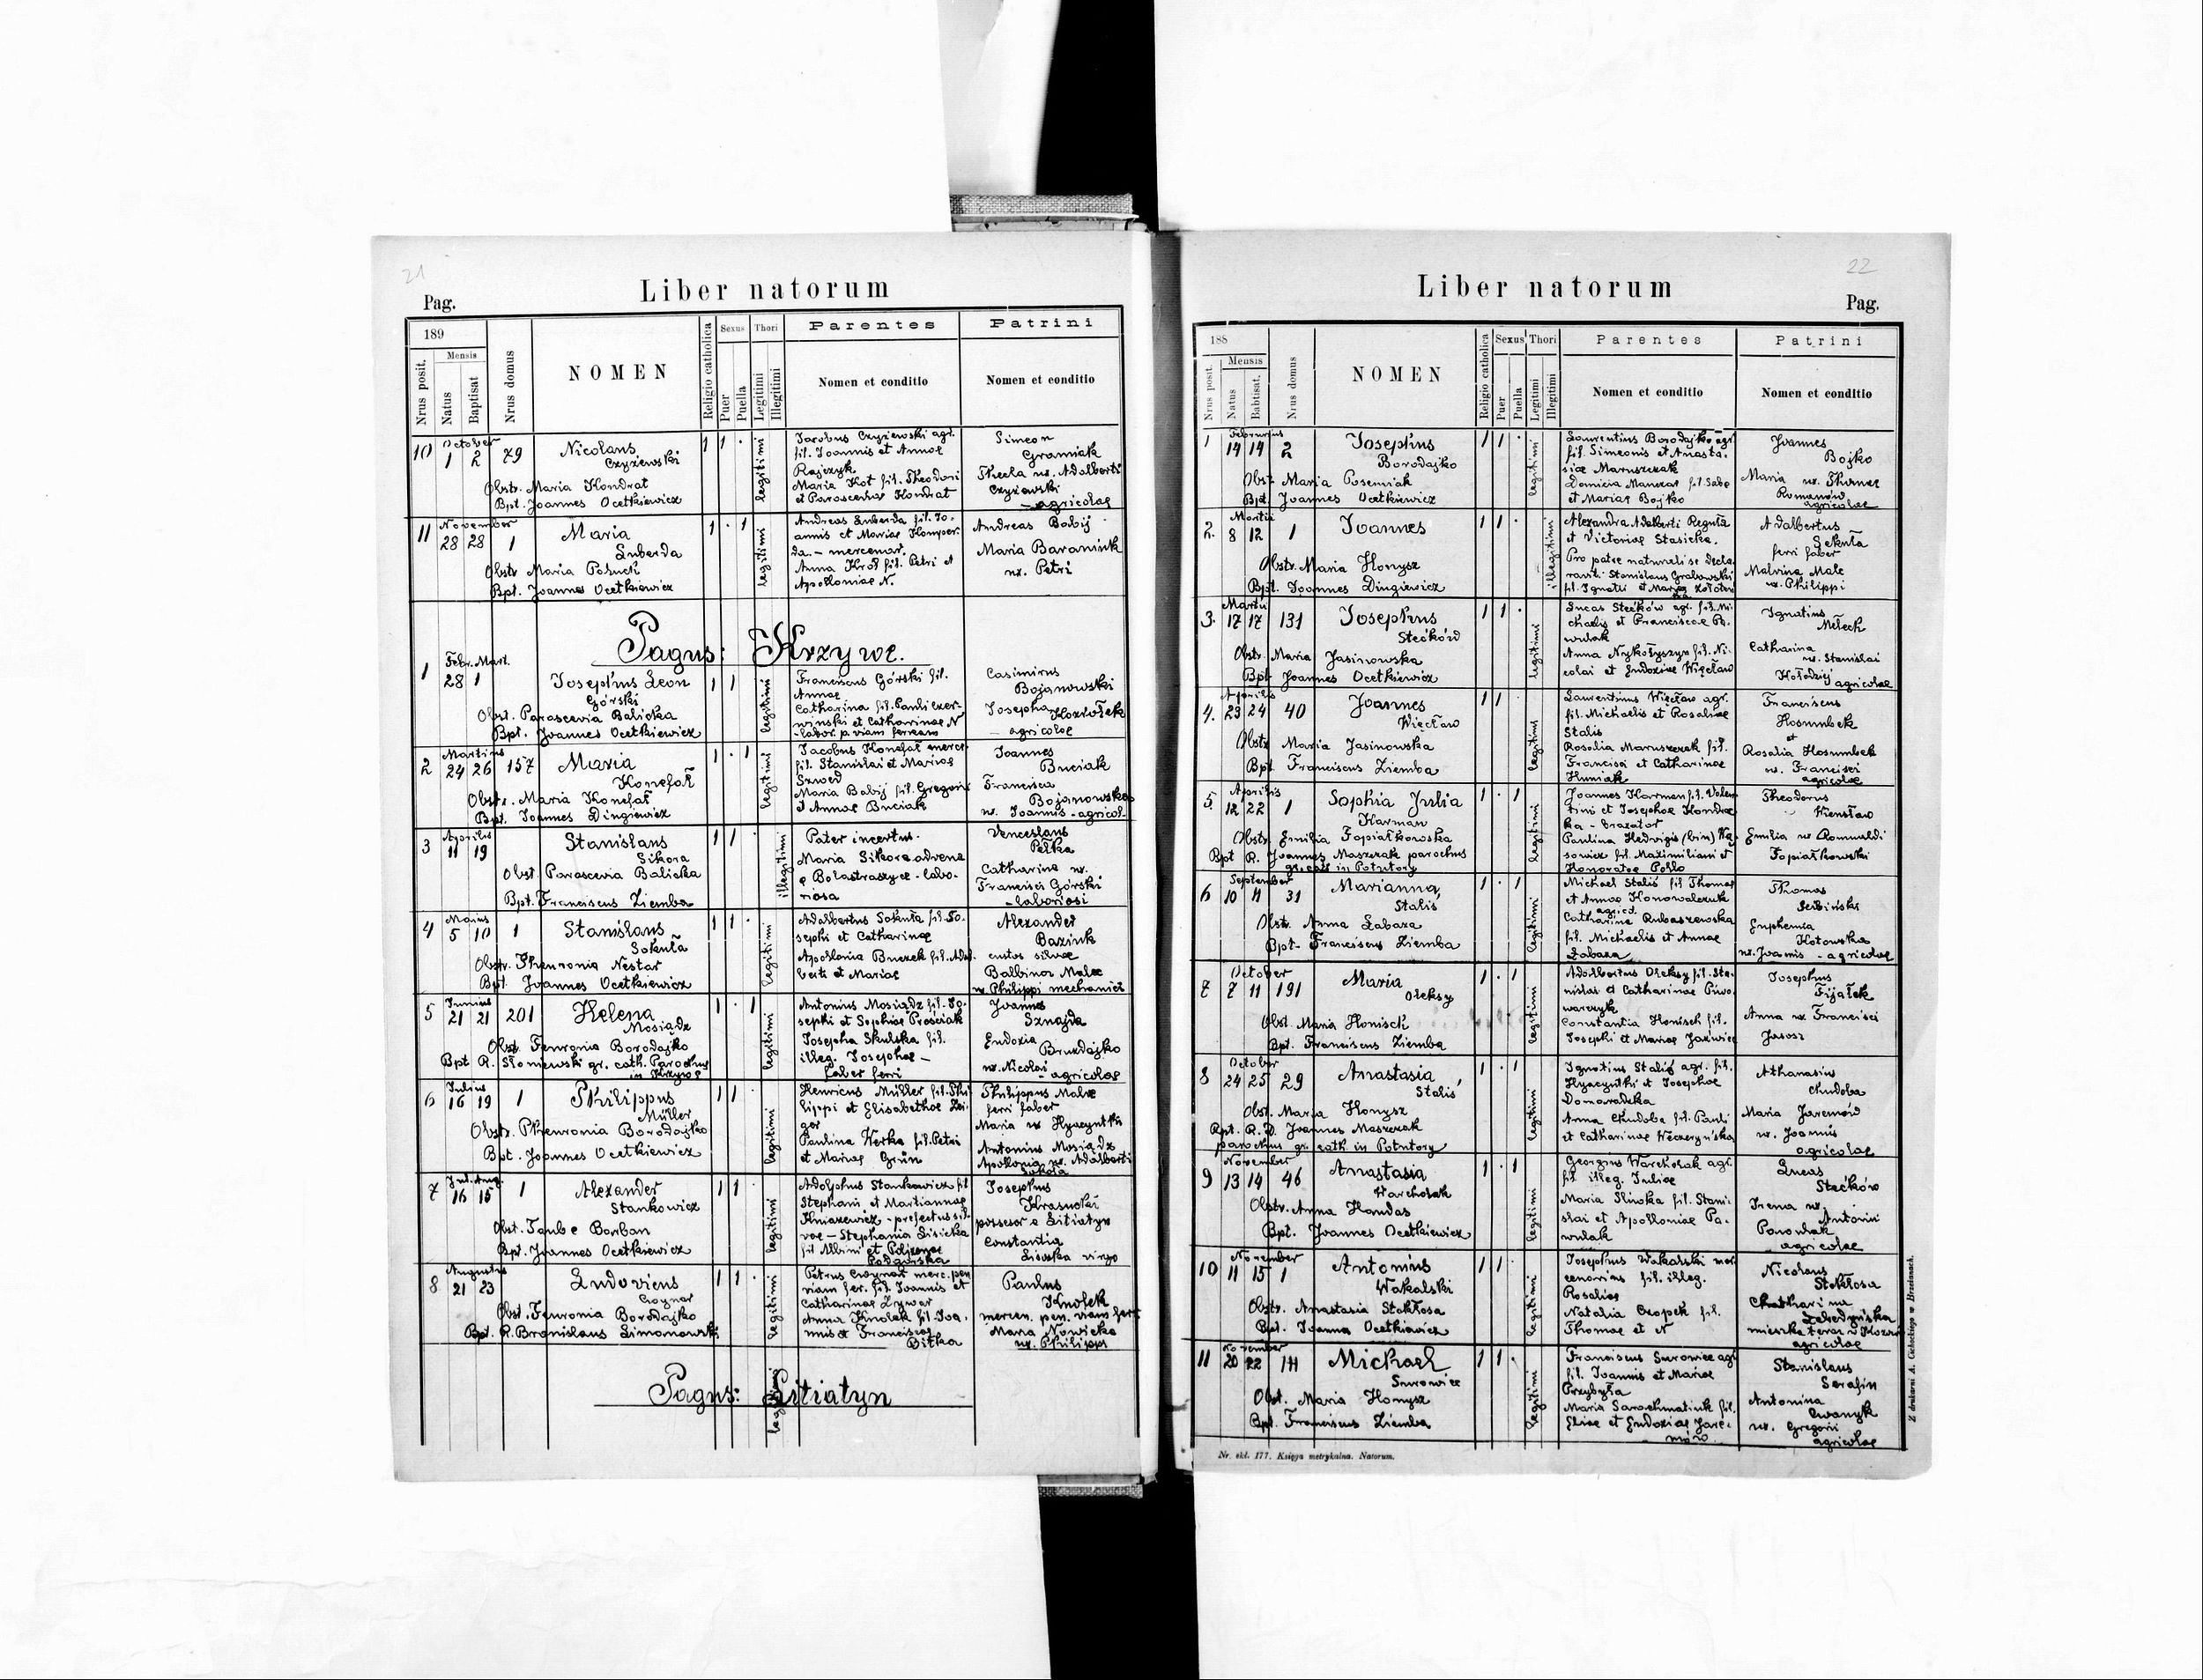 21
Liber natorum
Pag.
189
Nrus posit.
Mensis
Natus
Baptisat
Nrus domus
NOMEN
Religio catholica
Sexus
Puer
Puella
Thori
Legitimi
Illegitimi
Parentes
Nomen et conditio
Patrini
Nomen et conditio
10 October 1 2 79
Nicolaus
Czyżewski
Obstr. Maria Kondrat
Bpt. Joannes Ocetkiewicz
1 1 .
legitimi
Jacobus Czyżewski agr.
fil. Joannis et Annae
Rajczyk
Maria Kot fil. Theodori
et Parascevae Kondrat
Simeon
Graniak
Thecla ux. Adalberti
Czyżewski
agricolae
11 November 28 28 1
Maria
Luberda
Obstr Maria Połucki
Bpt. Joannes Ocetkiewicz
1 . 1
legitimi
Andreas Luberda fil. Jo-
annis et Mariae
da. - mercenar.
Anna Król fil. Petri et
Apolloniae N.
Andreas Babij
Maria Baraniuk
ux. Petri
Pagus: Krzywe.
1 Febr. Mart. 28 1
Josephus Leon
Górski
Obst. Parascevia Balicka
Bpt. Joannes Ocetkiewicz
1 1
legitimi
Franciscus Górski fil.
Annae
Catharina fil. Pauli Czer-
winski et Catharinae N
- labor. p. viam ferream
Casimirus
Bojanowski
Josepha Koziołek
- agricolae
2 Martius 24 26 157
Maria
Konefał
Obstr. Maria Konefał
Bpt. Joannes Dingiewicz
1 . 1
legitimi
Jacobus Konefał merc.
fil. Stanislai et Mariae
Szwed
Maria Babij fil. Gregorii
et Annae Buciak
Joannes
Buciak
Francisca
Bojanowska
ux. Joannis - agricol.
3 Aprilis 11 19
Stanislaus
Sikora
Obst. Parascevia Balicka
Bpt. Franciscus Ziemba
1 1 .
illegitimi
Pater incertus.
Maria Sikora advena
e Bolastraszyce - labo-
riosa
Venceslaus
Pełka
Catharina ux.
Francisci Górski
- laboriosi
4 Maius 5 10 1
Stanislaus
Sokuła
Obstr. Pheuronia Nestar
Bpt. Joannes Ocetkiewicz
1 1 .
legitimi
Adalbertus Sokuła fil. Jo-
sephi et Catharinae
Apollonia Buczek fil. Adal-
berti et Mariae
Alexander
Baziuk
custos silvae
Balbina Malec
ux. Philippi mechanici
5 Junius 21 21 201
Helena
Mosiądz
Obstr. Feuronia Borodajko
Bpt R. Słoniewski gr. cath. Parochus
in Krzywe
1 . 1
legitimi
Antonius Mosiądz fil. Jo-
sephi et Sophiae Prościak
Josepha Skulska fil.
illeg. Josephae -
faber ferri
Joannes
Sznajda
Eudoxia
Bruzdajko
ux. Nicolai - agricolae
6 Julius 16 19 1
Philippus
Müller
Obstr. Pheuronia Borodajko
Bpt. Joannes Ocetkiewicz
1 1
legitimi
Henricus Müller fil. Phi-
lippi et Elisabethae Zei-
ger
Paulina Werka fil. Petri
et Mariae Grün
Philippus Malec
ferri faber
Maria ux Hyacynthi
Antonius Mosiądz
Apollonia ux. Adalberti
Sokoła
7 Jul. Aug. 16 15 1
Alexander
Stankowicz
Obst. Taube Borban
Bpt. Joannes Ocetkiewicz
1 1
legitimi
Adolphus Stankowicz fil
Stephani et Martiannae
Kniazewicz - prefectus sil-
vae - Stephania Lisicka
fil Albini et
Podgórska
Josephus
Krasucki
possesor e Litiatyn
Constantia
Lisicka virgo
8 Augustus 21 23
Ludovicus
Cwynar
Obst. Feuronia Borodajko
Bpt. R. Bronislaus Limonowski
1 1 .
legitimi
Petrus Cwynar merc. pen
viam fer. fil. Joannis et
Catharinae Żywar
Anna Knolek fil. Joa-
nnis et Franciscae
Bitka
Paulus
Knolek
mercen. pen. viam ferr.
Maria Nowicka
ux. Philippi
Pagus: Litiatyn
legitimi
22
Liber natorum
Pag.
188
Nrus posit.
Mensis
Natus
Babtisat.
Nrus domus
NOMEN
Religio catholica
Sexus
Puer
Puella
Thori
Legitimi
Illegitimi
Parentes
Nomen et conditio
Patrini
Nomen et conditio
1 Februarius 14 14 2
Josephus
Borodajko
Obst. Maria Posemiak
Bpt. Joannes Ocetkiewicz
1 1 .
legitimi
Laurentius Borodajko agr
fil. Simeonis et Anasta-
siae Maruszczak
fil. Sabe
et Mariae Bojko
Joannes
Bojko
Maria ux. Thomae
Romanów
agricolae
2. Martii 8 12 1
Joannes
Obstr. Maria Honysz
Bpt. Joannes Dingiewicz
1 1 .
illegitimi
Alexandra Adalberti Reguła
et Victoriae Stasicka.
Pro patre naturali se decla-
ravit Stanislaus Grabowski
fil. Ignatii et Mariae
Adalbertus
Sekuła
ferri faber
Malvina Malc
ux. Philippi
3. Martii 17 17 131
Josephus
Stećków
Obstr. Maria Jasinowska
Bpt Joannes Ocetkiewicz
1 1 .
legitimi
Lucas Stećków agr. fil. Mi-
chaelis et Franciscae Pa-
wulak
Anna Nykołyszyn fil. Ni-
colai et Eudoxiae Więcław
Ignatius
Mélech
Catharina
ux. Stanislai
Kołodziej agricolae
4. Aprilis 23 24 40
Joannes
Więcław
Obstr Maria Jasinowska
Bpt Franciscus Ziemba
1 1
legitimi
Laurentius Więcław agr.
fil. Michaelis et Rosaliae
Stalis
Rosalia Maruszczak fil.
Francisci et Catharinae
Huniak
Franciscus
Hosumbek
et
Rosalia Hosumbek
ux. Francisci
agricolae
5. Aprilis 12 22 1
Sophia Julia
Karman
Obstr. Emilia Fopiałkowska
Bpt R. Joannes Maszczak parochus
gr. cath in Potutory
1 . 1
legitimi
Joannes Karman fil. Valen
tini et Josephae Kondra-
ka - braxator
Paulina Hedvigis (bin) Wą-
sowicz fil. Maximiliani et
Honoratae Pollo
Theodorus
Kiensław
Emilia ux Romualdi
Fopiałkowski
6 September 10 11 31
Marianna
Stalis
Obstr. Anna Łabaza
Bpt - Franciscus Ziemba
1 . 1
legitimi
Michael Stalis fil Thomae
et Annae Konowalczuk
agric.
Catharina Rubaszewska
fil. Michaelis et Annae
Łabaza
Thomas
Serbiński
Euphemia
Kotowska
ux. Joannis - agricolae
7 October 7 11 191
Maria
Oleksy
Obst. Maria Honisch
Bpt. Franciscus Ziemba
1 . 1
legitimi
Adalbertus Oleksy fil. Sta-
nislai et Catharinae Piwo-
warczyk
Constantia Honisch fil.
Josephi et Mariae Jaxiwicz
Josephus
Fijałek
Anna ux Francisci
Jasosz
8 October 24 25 29
Anastasia
Stalis
Obst. Maria Honysz
Bpt. R. D. Joannes Maszczak
parochus gr. cath in Potutory
1 . 1
legitimi
Ignatius Stalis agr. fil.
Hyacynthi et Josephae
Domaradzka
Anna Chudoba fil. Pauli
et Catharinae Weczeryńska
Athanasius
Chudoba
Maria Jaremów
ux. Joannis
agricolae
9 November 13 14 46
Anastasia
Warcholak
Obstr. Anna Handas
Bpt. Joannes Ocetkiewicz
1 . 1
legitimi
Georgius Warcholak agr.
fil. illeg. Juliae
Maria Sliwka fil. Stani-
slai et Apolloniae Pa-
wulak
Lucas
Stećków
Irena ux.
Antonii
Panowlak
agricolae
10 November 11 15 1
Antonius
Wakalski
Obstr. Anastasia Stokłosa
Bpt. Joannes Ocetkiewicz
1 1
legitimi
Josephus Wakalski mer-
cenarius fil. illeg.
Rosaliae
Natalia Czopek fil.
Thomae et N
Nicolaus
Stokłosa
Chatharina
mieszka teraz w
agricolae
11 November 20 22 141
Michael
Surowiec
Obst. Maria Honysz
Bpt. Franciscus Ziemba
1 1 .
legitimi
Franciscus Surowiec agr
fil. Joannis et Mariae
Przybyła
Maria Sarachmatiuk fil.
Eliae et Eudoxiae Jare-
mów
Stanislaus
Serafin
Antonina
Iwanyk
ux. Gregorii
agricolae
Nr. skł. 177. Księga metrykalna. Natorum.
Z drukarni A. Cichockiego w Brzeżanach.